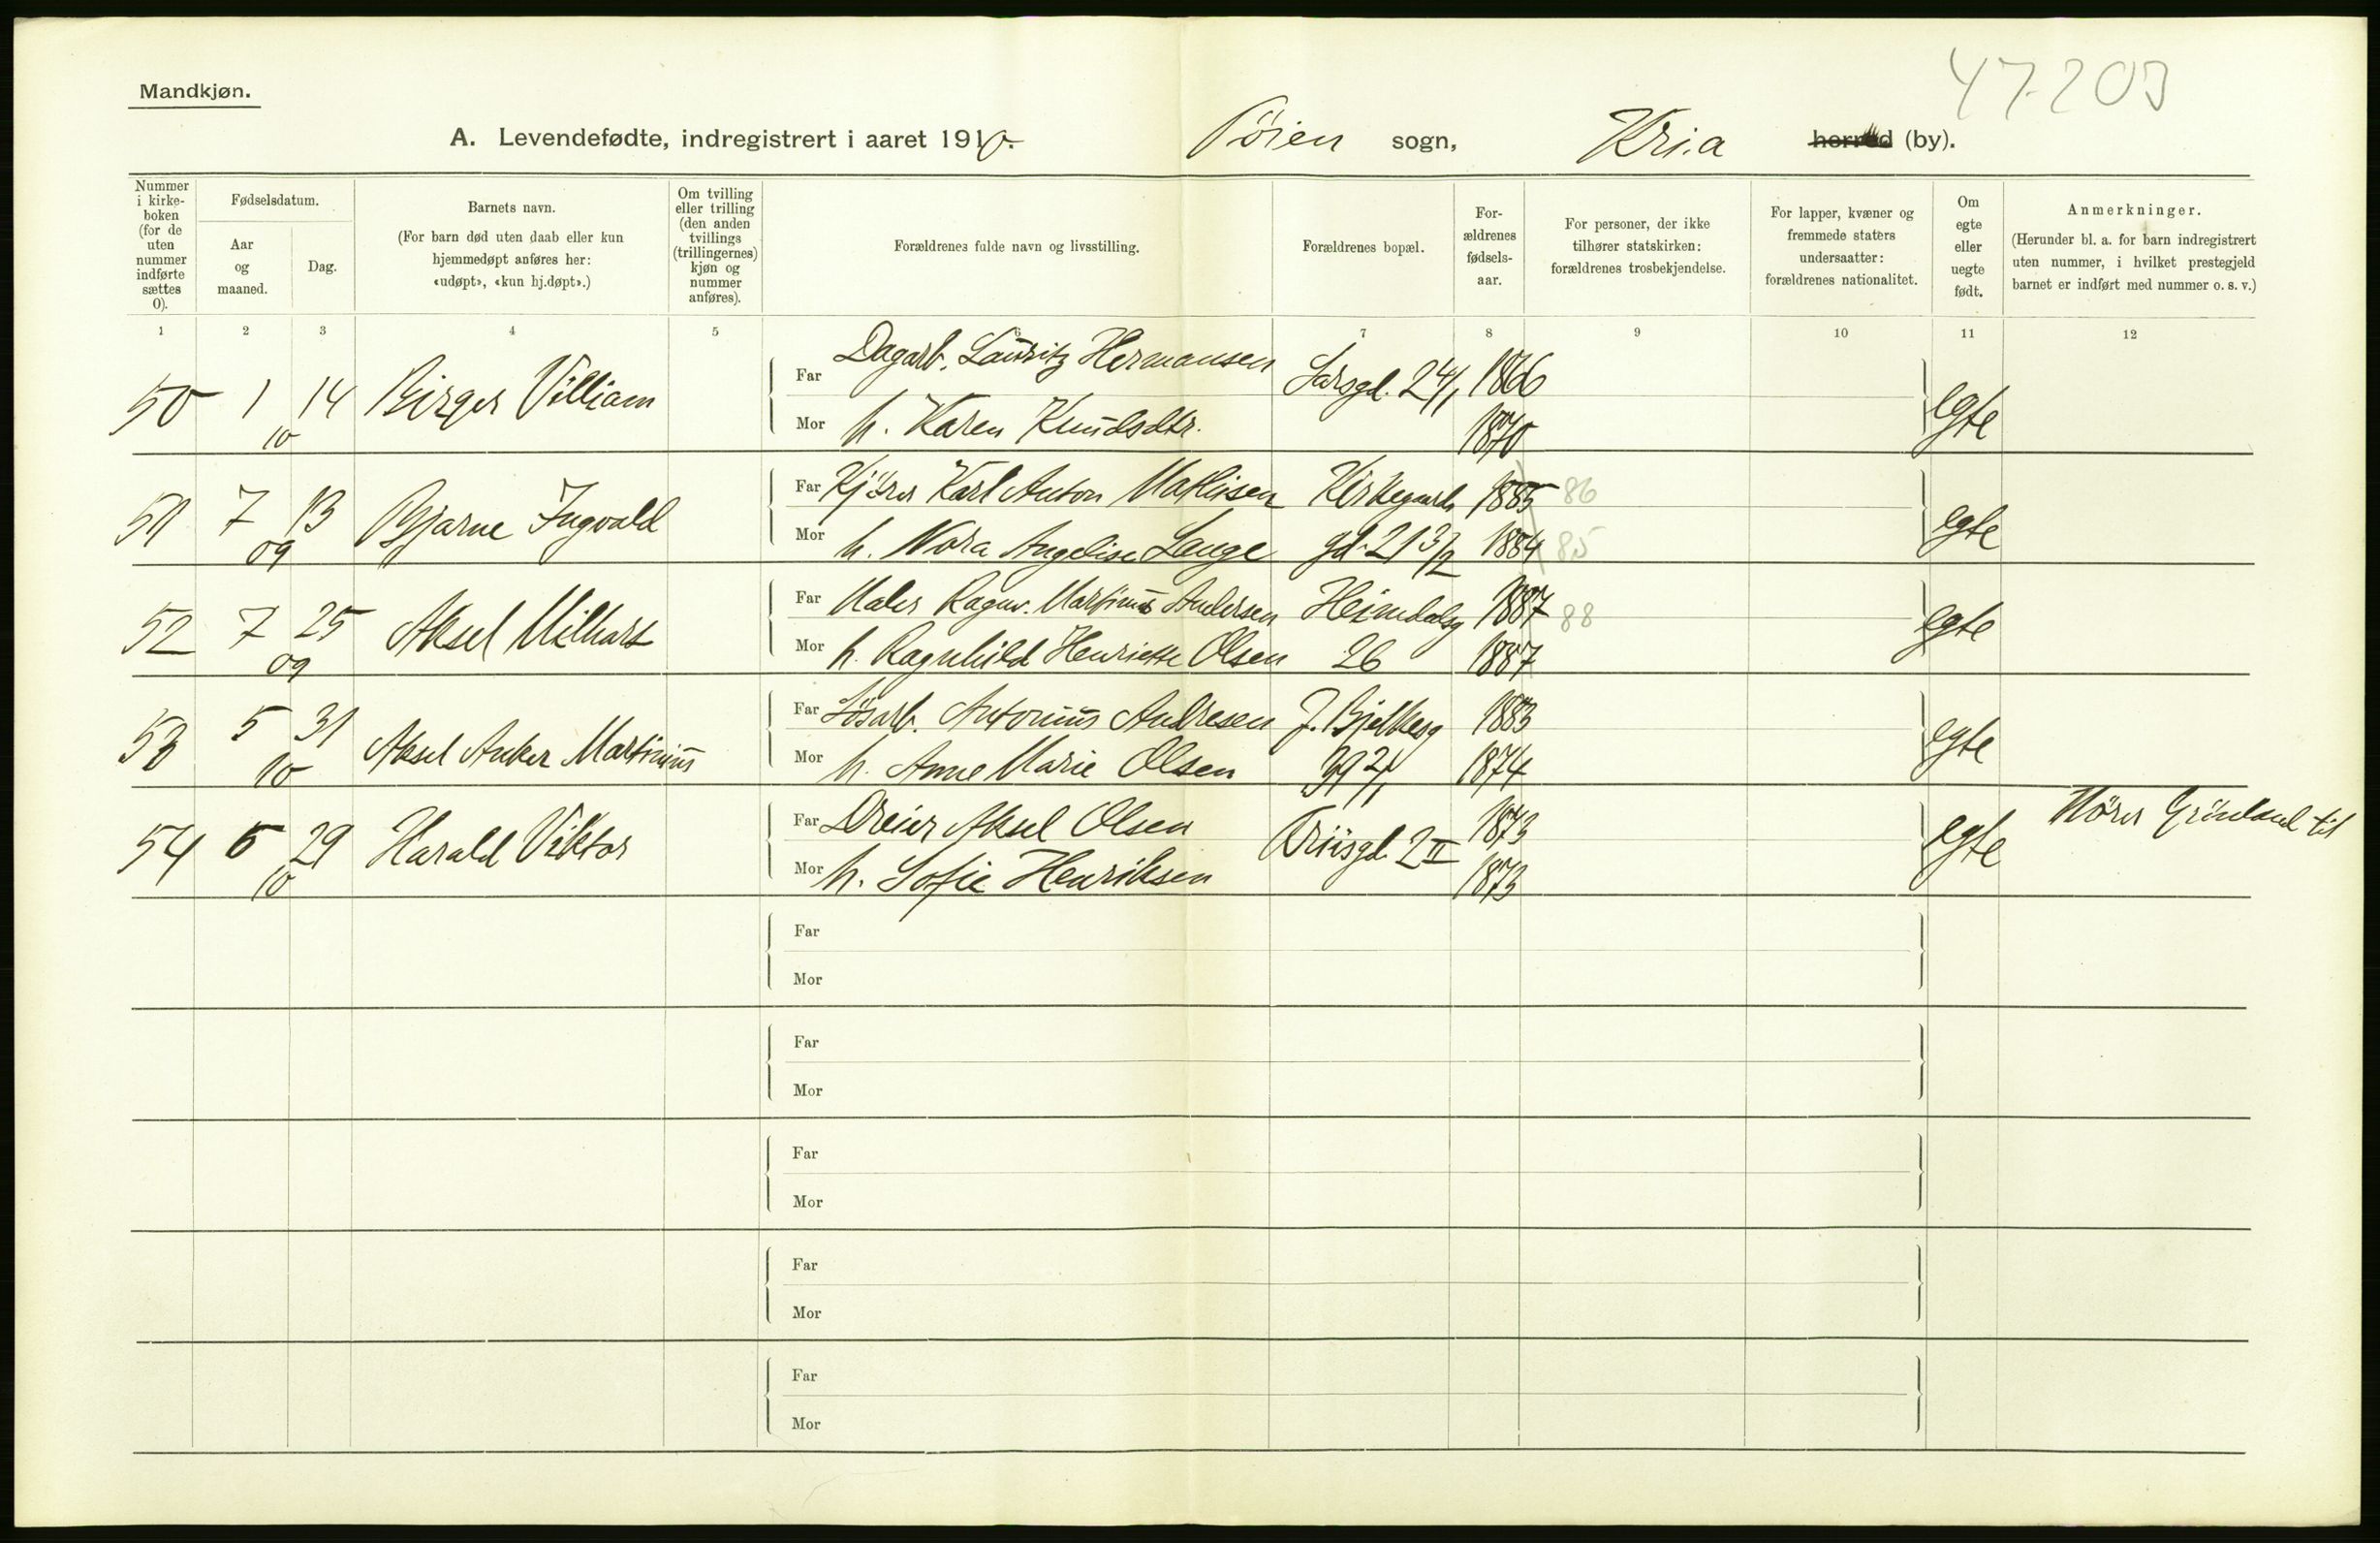 47.203
Mandkjøn.
A. Levendefødte, indregistrert i aaret 1910. Tøien sogn, Kria herred (by).
Nummer i kirkeboken (for de uten nummer indførte sættes 0).
Fødselsdatum.
Aar og maaned.
Dag.
Barnets navn.
(For barn død uten daab eller kun hjemmedøpt anføres her: «udøpt», «kun hj.døpt».)
Om tvilling eller trilling (den anden tvillings (trillingernes) kjøn og nummer anføres).
Forældrenes fulde navn og livsstilling.
Forældrenes bopæl.
For-ældrenes fødsels-aar.
For personer, der ikke tilhører statskirken: forældrenes trosbekjendelse.
For lapper, kvæner og fremmede staters undersaatter: forældrenes nationalitet.
Om egte eller uegte født.
Anmerkninger.
(Herunder bl. a. for barn indregistrert uten nummer, i hvilket prestegjeld barnet er indført med nummer o. s. v.)
1 2 3 4 5 6 7 8 9 10 11 12
50 1 14 10 Birger Villiam
Far Dagarb. Lauritz Hermansen Sarsgd. 24/1 1866
Mor h. Karen Knudsdtr. 1870
egte
51 7 13 09 Bjarne Ingvald
Far Kjører Karl Anton Mathisen Kirkegards 1885 86
Mor h. Nora Angelise Lange gd. 213/2 1884 85
egte
52 7 25 09 Aksel Milhart
Far Maler Ragnv. Martinus Andersen Heimdalsg 1887 88
Mor h. Ragnhild Henriette Olsen 26 1887
egte
53 5 31 10 Aksel Anker Martinius
Far Løsarb. Antonius Andresen J. Bjelkesg 1883
Mor h. Anne Marie Olsen 1874
egte
54 5 29 10 Harald Viktor
Far Dreier Aksel Olsen Kriisgd. 2 II 1873
Mor h. Sofie Henriksen 1873
egte Hører Grønland til
Far
Mor
Far
Mor
Far
Mor
Far
Mor
Far
Mor